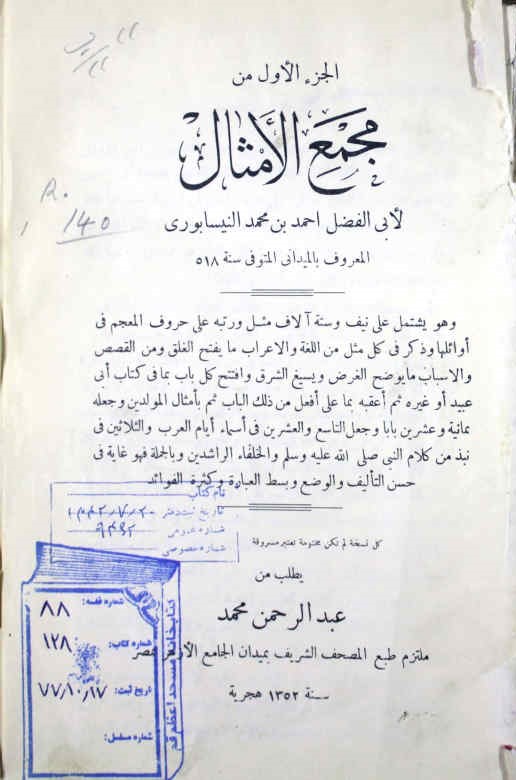 الجزء الأول من
مجمع الأمثال
لأبى الفضل احمد بن محمد النيسابورى
المعروف بالميدانى المتوفى سنة ٥١٨
وهو يشتمل على نيف وستة آلاف مثل ورتبه على حروف المعجم فى
أوائلها وذكر فى كل مثل من اللغة والاعراب ما يفتح الغلق ومن القصص
والاسباب مايوضح الغرض ويسيغ الشرق وافتتح كل باب بما فى كتاب أبى
عبيد أو غيره ثم أعقبه بما على أفعل من ذلك الباب ثم بأمثال المولدين وجعله
بمانية وعشرين بابا وجعل التاسع والعشرين فى أسماء أيام العرب والثلاثين فى
نبذ من كلام النبي صلى الله عليه وسلم والخلفاء الراشدين وبالجملة فهو غاية فى
حسن التأليف والوضع وبسط العبارة وكثرة الفوائد
كل نسخة لم تكن مختومة تعتبر مسروقة
يطلب من
عبد الرحمن محمد
ملتزم طبع المصحف الشريف بميدان الجامع الأزهر بمصر
سنة ١٣٥٢ هجرية
R.
140
نام کتاب
تاریخ ثبت دفتر
شماره عمومی
شماره خصوصی
کتابخانه مسجد اعظم قم
شماره قفسه: ٨٨
شماره کتاب: ١٢٨
تاریخ ثبت: ٧٧/١٠/١٧
شماره مسلسل: